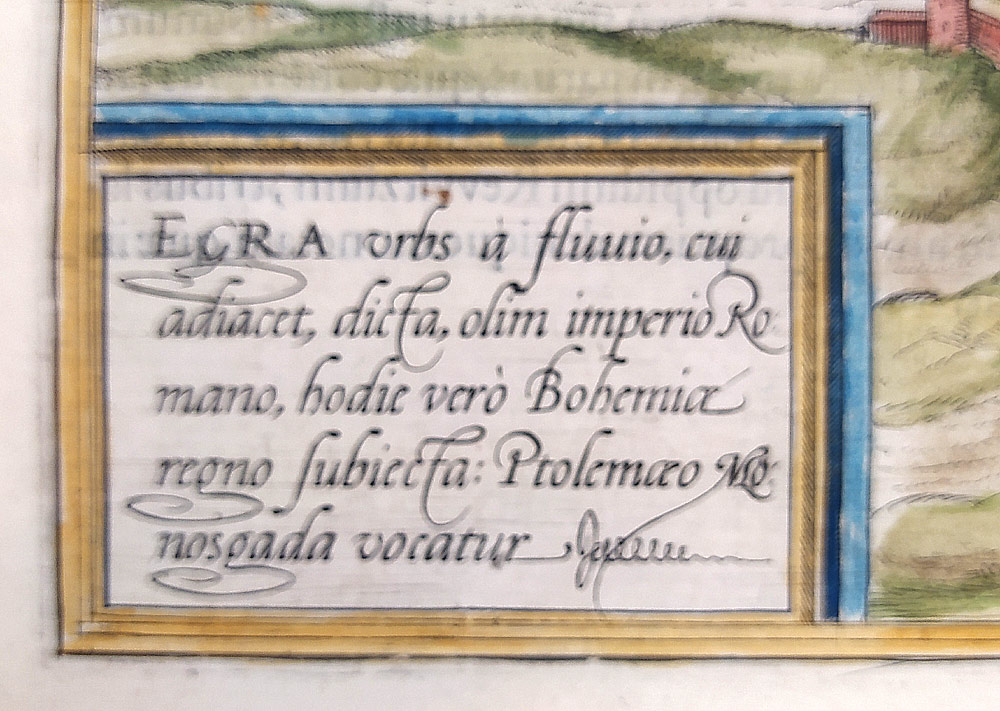 EGRA vrbs à fluuio, cui
adiacet, dicta, olim imperio Ro:
mano, hodie verò Bohemiæ
regno ſubiecta: Ptolemæo Mo:
nosgada vocatur